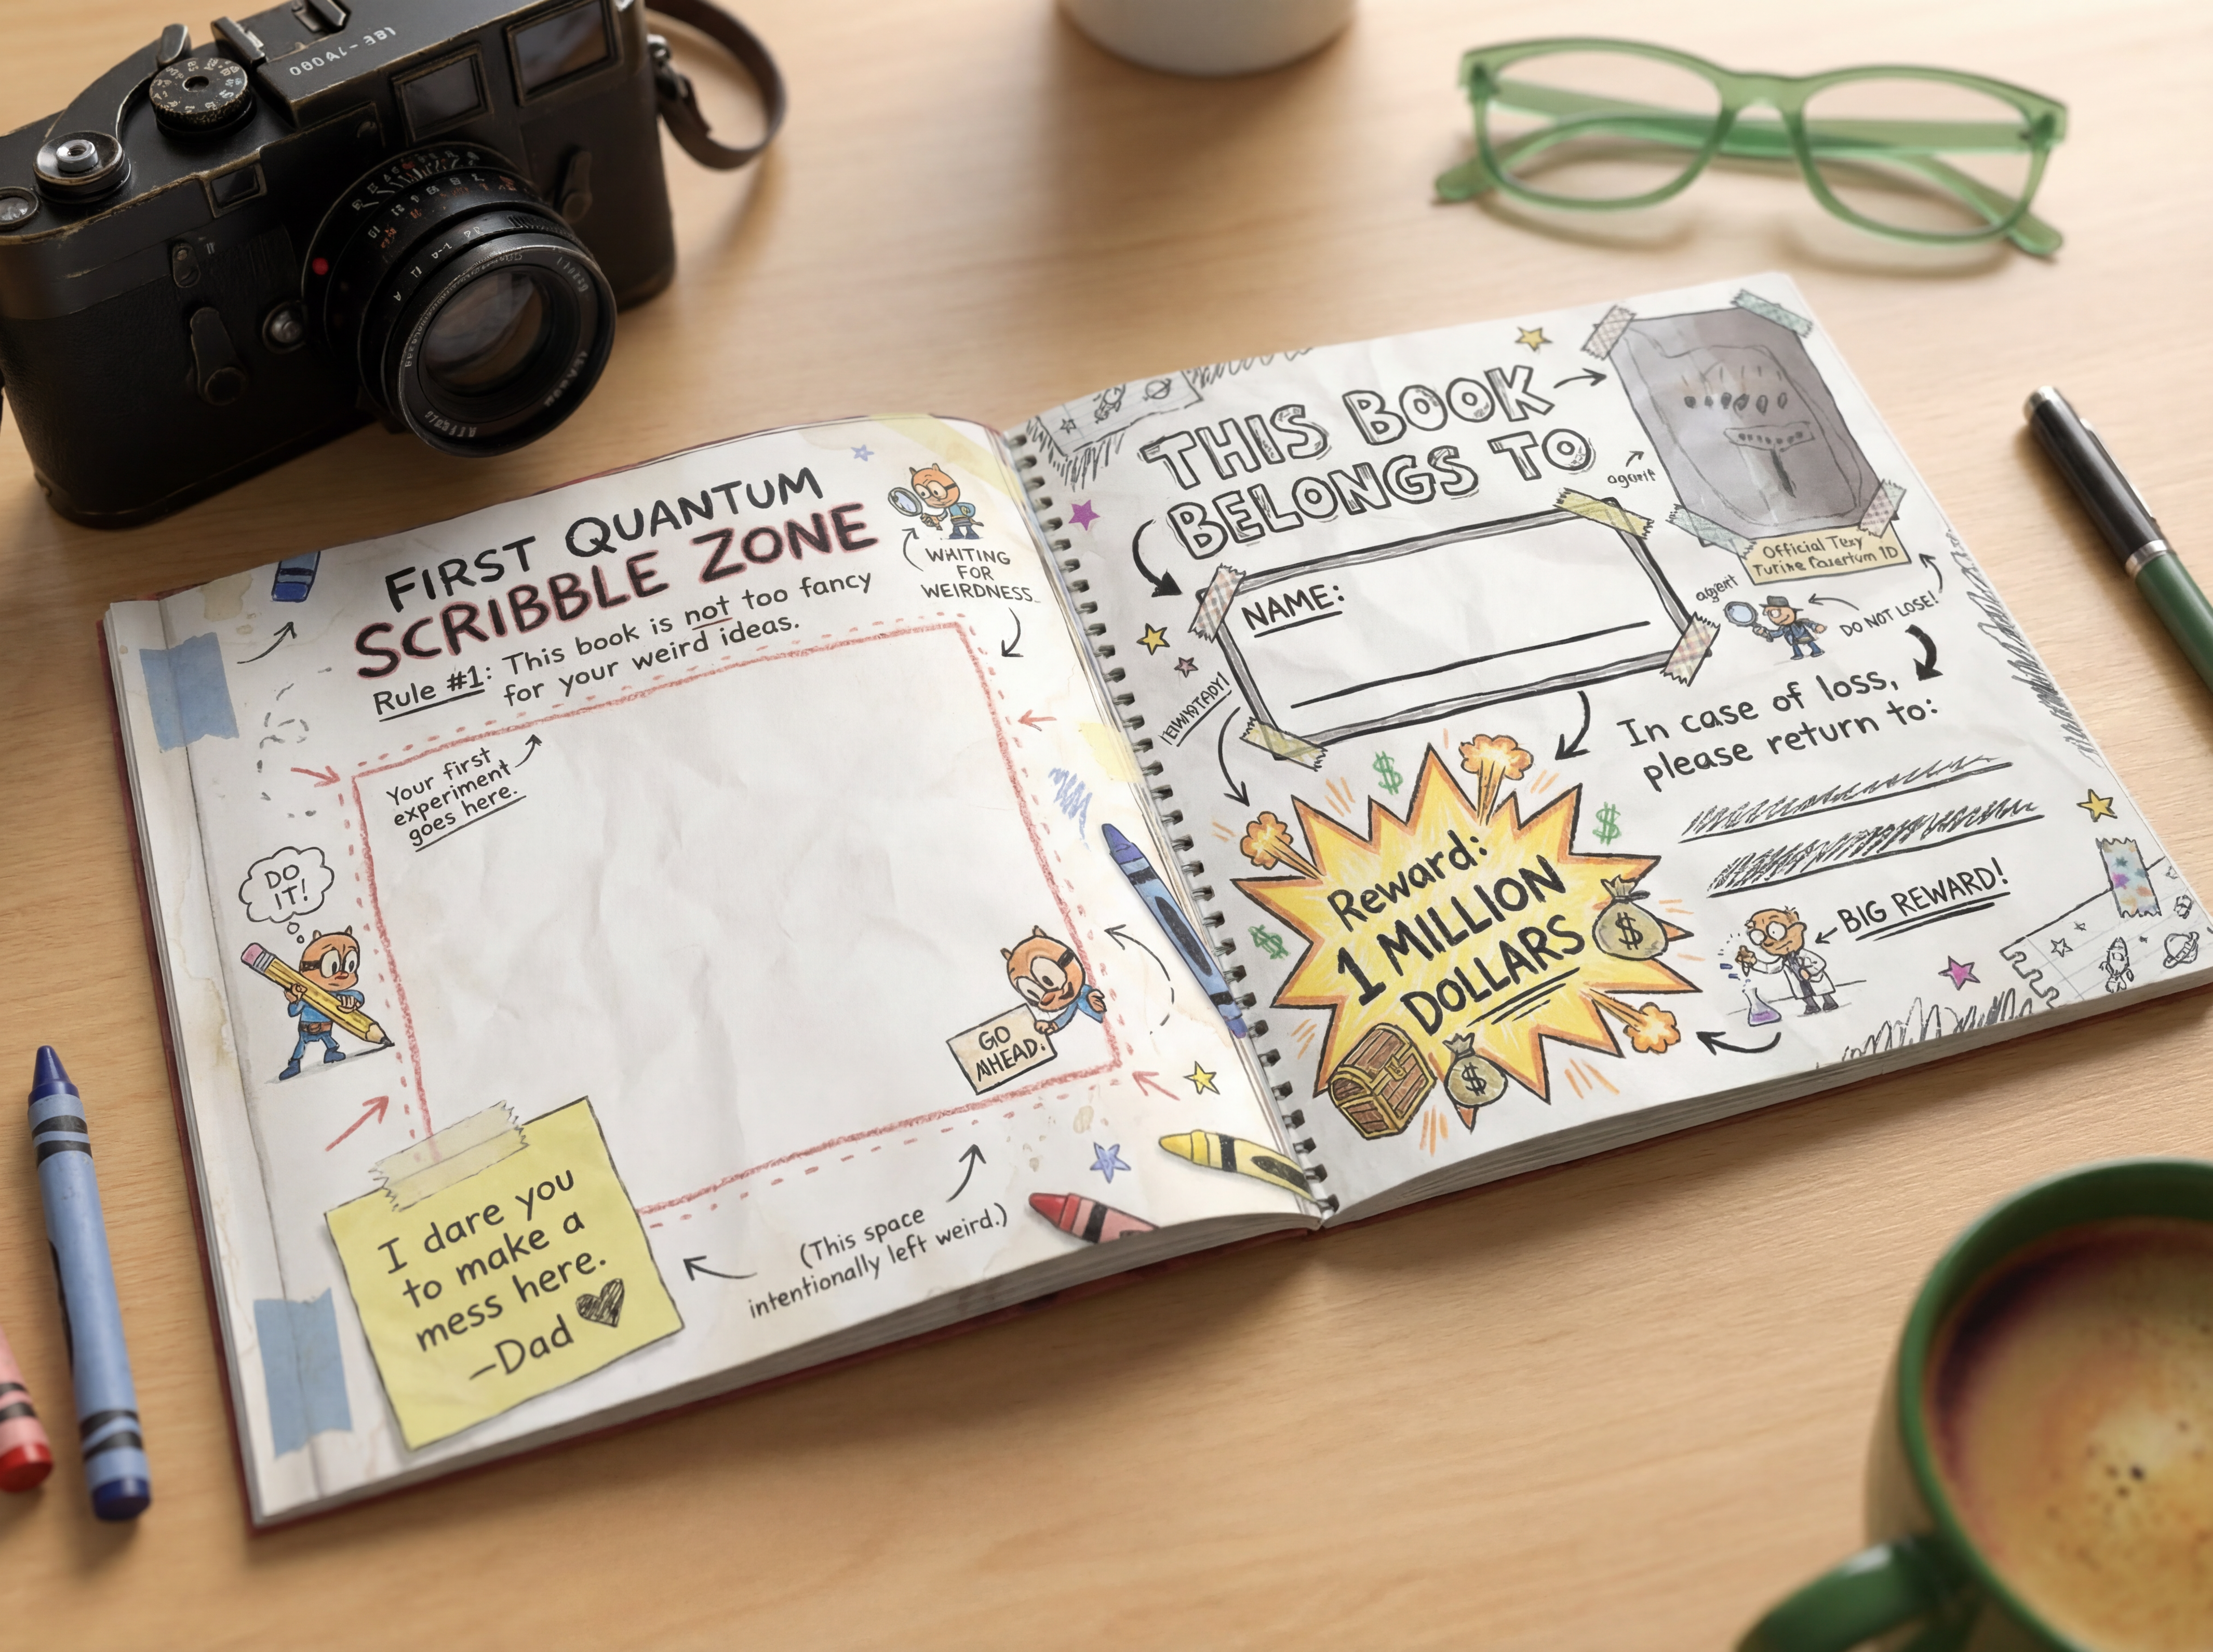 FIRST QUANTUM
SCRIBBLE ZONE
Rule #1: This book is not too fancy
for your weird ideas.
WHITING
FOR
WEIRDNESS..
Your first
experiment
goes here.
DO
IT!
GO
AHEAD.
I dare you
to make a
mess here.
—Dad
(This space
intentionally left weird.)
THIS BOOK
BELONGS TO
NAME:
agent
Official
agent
DO NOT LOSE!
In case of loss,
please return to:
Reward:
1 MILLION
DOLLARS
$
$
$
$
$
BIG REWARD!